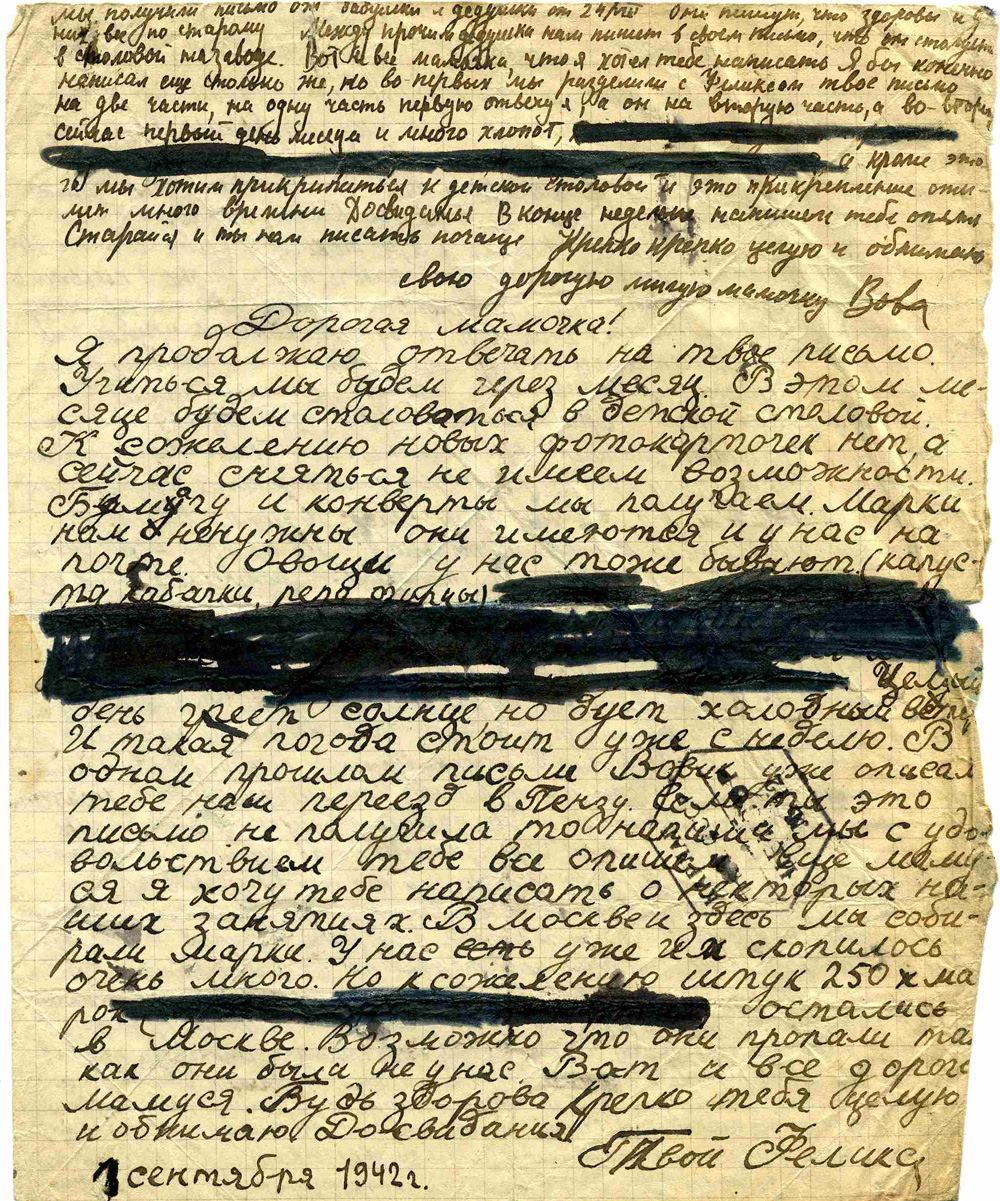 мы получили письмо от бабушки и дедушки от 24/VIII они пишут, что здоровы и у
них все по старому Между прочим дедушка нам пишет в своем письмо, что он столуется
в столовой на заводе. Вот и все мамочка, что я хотел тебе написать Я бы конечно
написал еще столько же, но во первых мы разделили с Феликсом твое письмо
на две части, на одну часть первую отвечу я, а он на вторую часть, а во-вторых
сейчас первый день месяца и много хлопот,
а кроме это
го мы хотим прикрипиться к детской столовой и это прикрепление отни-
мет много времени Досвиданья В конце недели напишем тебе опять
Старайся и ты нам писать почаще Крепко крепко целую и обнимаю
свою дорогую милую мамочку Вова
Дорогая мамочка!
Я продалжаю отвечать на твое письмо.
Учиться мы будем через месяц. В этом ме-
сяце будем столоваться в детской сталовой.
К сожелению новых фотокарточек нет, а
сейчас сняться не имеем возможности.
Бумагу и конверты мы палучаем. Марки
нам ненужны они имеются и у нас на
почте. Овощи у нас тоже бывают (капус-
та кабачки, репа, огурцы)
Целый
день греет солнце, но дует халодный ветер
И такая погода стоит уже с неделю. В
однам прошлам письме Вовик уже описал
тебе наш переезд в Пензу. Если ты это
письмо не палучила то напиши мы с удо-
вольствием тебе все опишем Еще маму-
ся я хочу тебе написать о некторых на-
ших занятиях. В москве и здесь мы соби-
рали марки. У нас есть уже их скопилось
очень много. Но к сожелению штук 250 х ма
рок остались
в Москве. Возможно что они пропали та
как они были не у нас Вот и все дорога
мамуся. Будь здорова Крепко тебя целую
и обнимаю До свидания
Твой Феликс
1 сентября 1942г.